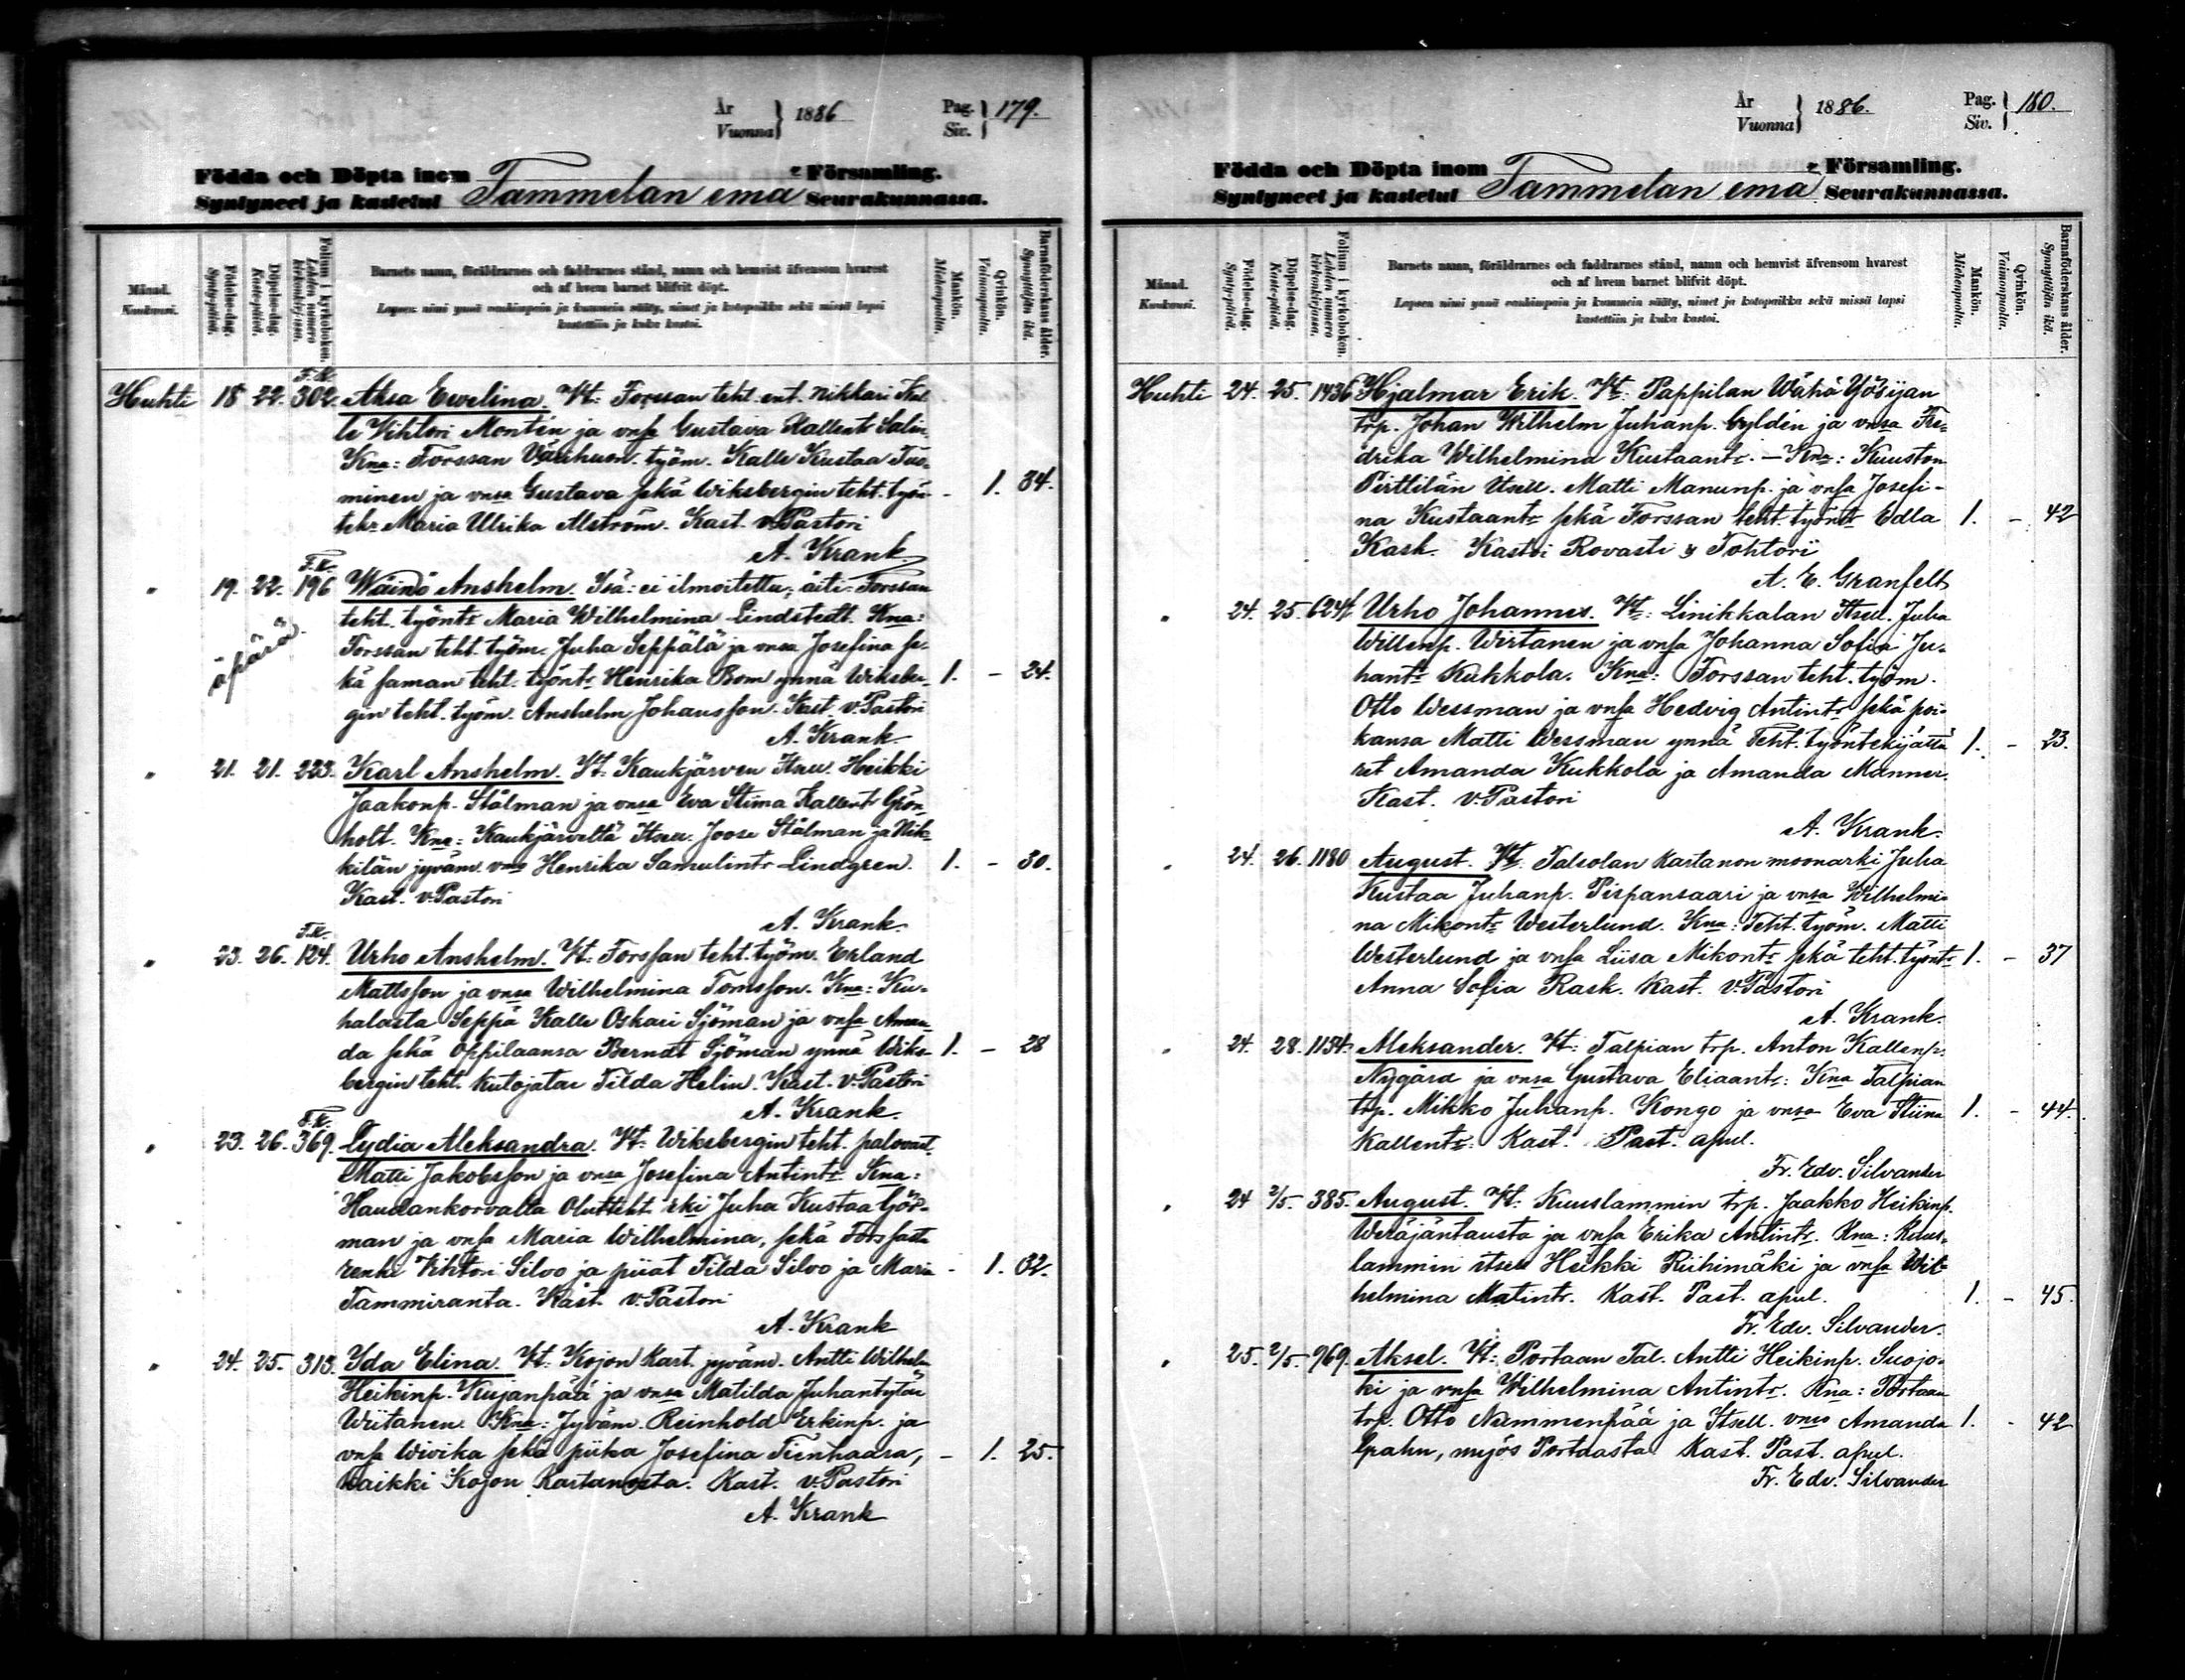 År
Vuonna } 1886
Pag.
Siv. } 179.
Födda och Döpta inom Tammelan emä Församling.
Syntyneet ja kastetut Seurakunnassa.
Månad.
Kuukausi.
Födelse-dag.
Synty-päivä.
Döpelse-dag.
Kaste-päivä.
Folium i kyrkoboken.
Lehden numero kirkonkirjassa.
Barnets namn, föräldrarnes och faddrarnes stånd, namn och hemvist äfvensom hvarest
och af hvem barnet blifvit döpt.
Lapsen nimi ynnä vanhimpain ja kummein sääty, nimet ja kotopaikka sekä missä lapsi
kastettiin ja kuka kastoi.
Mankön.
Miehenpuolta.
Qvinkön.
Vaimonpuolta.
Barnaföderskans ålder.
Synnyttäjän ikä.
F.K.
Huhti 18 22. 302. Aksa Ewelina. Vt: Forssan teht. ent. Nikkari Kal-
le Vihtori Montén ja vnsa Gustava Kallent Salin.
Kna: Forssan työm. Kalle Kustaa Tuo-
minen ja vnsa Gustava sekä Wiksbergin teht. työn- - 1. 34.
tekr Maria Ulrika Alström. Kast. v. Pastori
A. Krank.
F.K.
" 19. 22. 196 Wäinö Anshelm. Isä: ei ilmoitettu; äiti: Forssan
äpärä.
teht. työntr Maria Wilhelmina Lindstedt. Kna:
Forssan teht. työm. Juha Seppälä ja vnsa Josefina se-
kä saman teht. työntr Henrika Bom ynnä Wiksber- 1. - 24.
gin teht. työm. Anshelm Johansson. Kast. v. Pastori
A. Krank.
" 21. 21. 223. Karl Anshelm. Vt: Kaukjärven Itsell. Heikki
Jaakonp. Stålman ja vnsa Eva Stiina Kallentr Grön-
holt. Kna: Kaukjärveltä Itsell. Joose Stålman ja Nik-
kilän jyväm. vmo Henrika Samulintr Lindgren. 1. - 30.
Kast. v. Pastori
A. Krank.
F.K.
" 23. 26. 124. Urho Anshelm. Vt: Forssan teht. työm. Erland
Mattsson ja vnsa Wilhelmina Tomsson. Kna: Ku-
halasta Seppä Kalle Oskari Sjöman ja vnsa Aman-
da sekä Oppilaansa Berndt Sjöman ynnä Wiks- 1. - 28
bergin teht. Kutojatar Tilda Helin. Kast. v. Pastori
A. Krank.
F.K.
" 23. 26. 369. Lydia Aleksandra. Vt: Wiksbergin teht. palovart.
Matti Jakobsson ja vnsa Josefina Antintr Kna:
Haudankorvalta Olutteht. rki Juha Kustaa Gör-
man ja vnsa Maria Wilhelmina, sekä Forssasta
renki Vihtori Silvo ja piiat Tilda Silvo ja Maria - 1. 32.
Tammiranta. Kast. v. Pastori
A. Krank
" 24. 25. 313. Ida Elina. Vt: Kojon Kart. jyväm. Antti Wilhelm
Heikinp. Kujanpää ja vnsa Matilda Juhantytär
Wiitanen. Kna: Jyväm. Reinhold Erkinp. ja
vnsa Wivika sekä piika Josefina Tienhaara, - 1. 25.
kaikki Kojon Kartanosta. Kast. v. Pastori
A. Krank
År
Vuonna } 1886.
Pag.
Siv. } 180.
Födda och Döpta inom Tammelan emä Församling.
Syntyneet ja kastetut Seurakunnassa.
Månad.
Kuukausi.
Födelse-dag.
Synty-päivä.
Döpelse-dag.
Kaste-päivä.
Folium i kyrkoboken.
Lehden numero kirkonkirjassa.
Barnets namn, föräldrarnes och faddrarnes stånd, namn och hemvist äfvensom hvarest
och af hvem barnet blifvit döpt.
Lapsen nimi ynnä vanhimpain ja kummein sääty, nimet ja kotopaikka sekä missä lapsi
kastettiin ja kuka kastoi.
Mankön.
Miehenpuolta.
Qvinkön.
Vaimonpuolta.
Barnaföderskans ålder.
Synnyttäjän ikä.
Huhti 24. 25. 1436 Hjalmar Erik. Vt: Pappilan Wähä
trp. Johan Wilhelm Juhanp. Gyldén ja vnsa Fre-
drika Wilhelmina Kustaantr. - Kna: Kuuston
Pirttilän Itsell. Matti Manunp. ja vnsa Josefi-
na Kustaantr sekä Forssan teht. työntr Edla 1. - 42
Kask. Kastoi Rovasti & Tohtori
A. E. Granfelt
" 24. 25. 624 Urho Johannes. Vt: Linikkalan Itsell. Juha
Willenp. Wirtanen ja vnsa Johanna Sofia Ju-
hantr Kukkola. Kna: Forssan teht. työm.
Otto Wessman ja vnsa Hedvig Antintr sekä poi-
kansa Matti Wessman ynnä Teht. työntekijättä- 1. - 23.
ret Amanda Kukkola ja Amanda Manner.
Kast. v. Pastori
A. Krank.
" 24. 26. 1180 August. Vt. Talsolan Kartanon moonarki Juha
Kustaa Juhanp. Pispansaari ja vnsa Wilhelmi-
na Mikontr Westerlund. Kna: Teht. työm. Matti
Westerlund ja vnsa Liisa Mikontr sekä teht. työntr 1. - 37
Anna Sofia Rask. Kast. v. Pastori
A. Krank.
" 24. 28. 1154. Aleksander. Vt: Talpian trp. Anton Kallenp.
Nygård ja vnsa Gustava Eliaantr: Kna Talpian
trp. Mikko Juhanp. Kongo ja vnsa Eva Stiina 1. - 44.
Kallentr. Kast. Past. apul.
Fr. Edv. Silvander
" 24 2/5. 385. August. Vt: Kuuslammin trp. Jaakko Heikinp.
Weräjäntausta ja vnsa Erika Antintr. Kna: Kuus-
lammin itsell Heikki Riihimäki ja vnsa Wil-
helmina Matintr. Kast. Past. apul. 1. - 45.
Fr. Edv. Silvander.
" 25. 2/5. 969. Aksel. Vt: Portaan Tal. Antti Heikinp. Suojo-
ki ja vnsa Wilhelmina Antintr. Kna: Portaan
trp. Otto Nummenpää ja Itsell. vmo Amanda 1. - 42
Grahn, myös Portaasta Kast. Past. apul.
Fr. Edv. Silvander